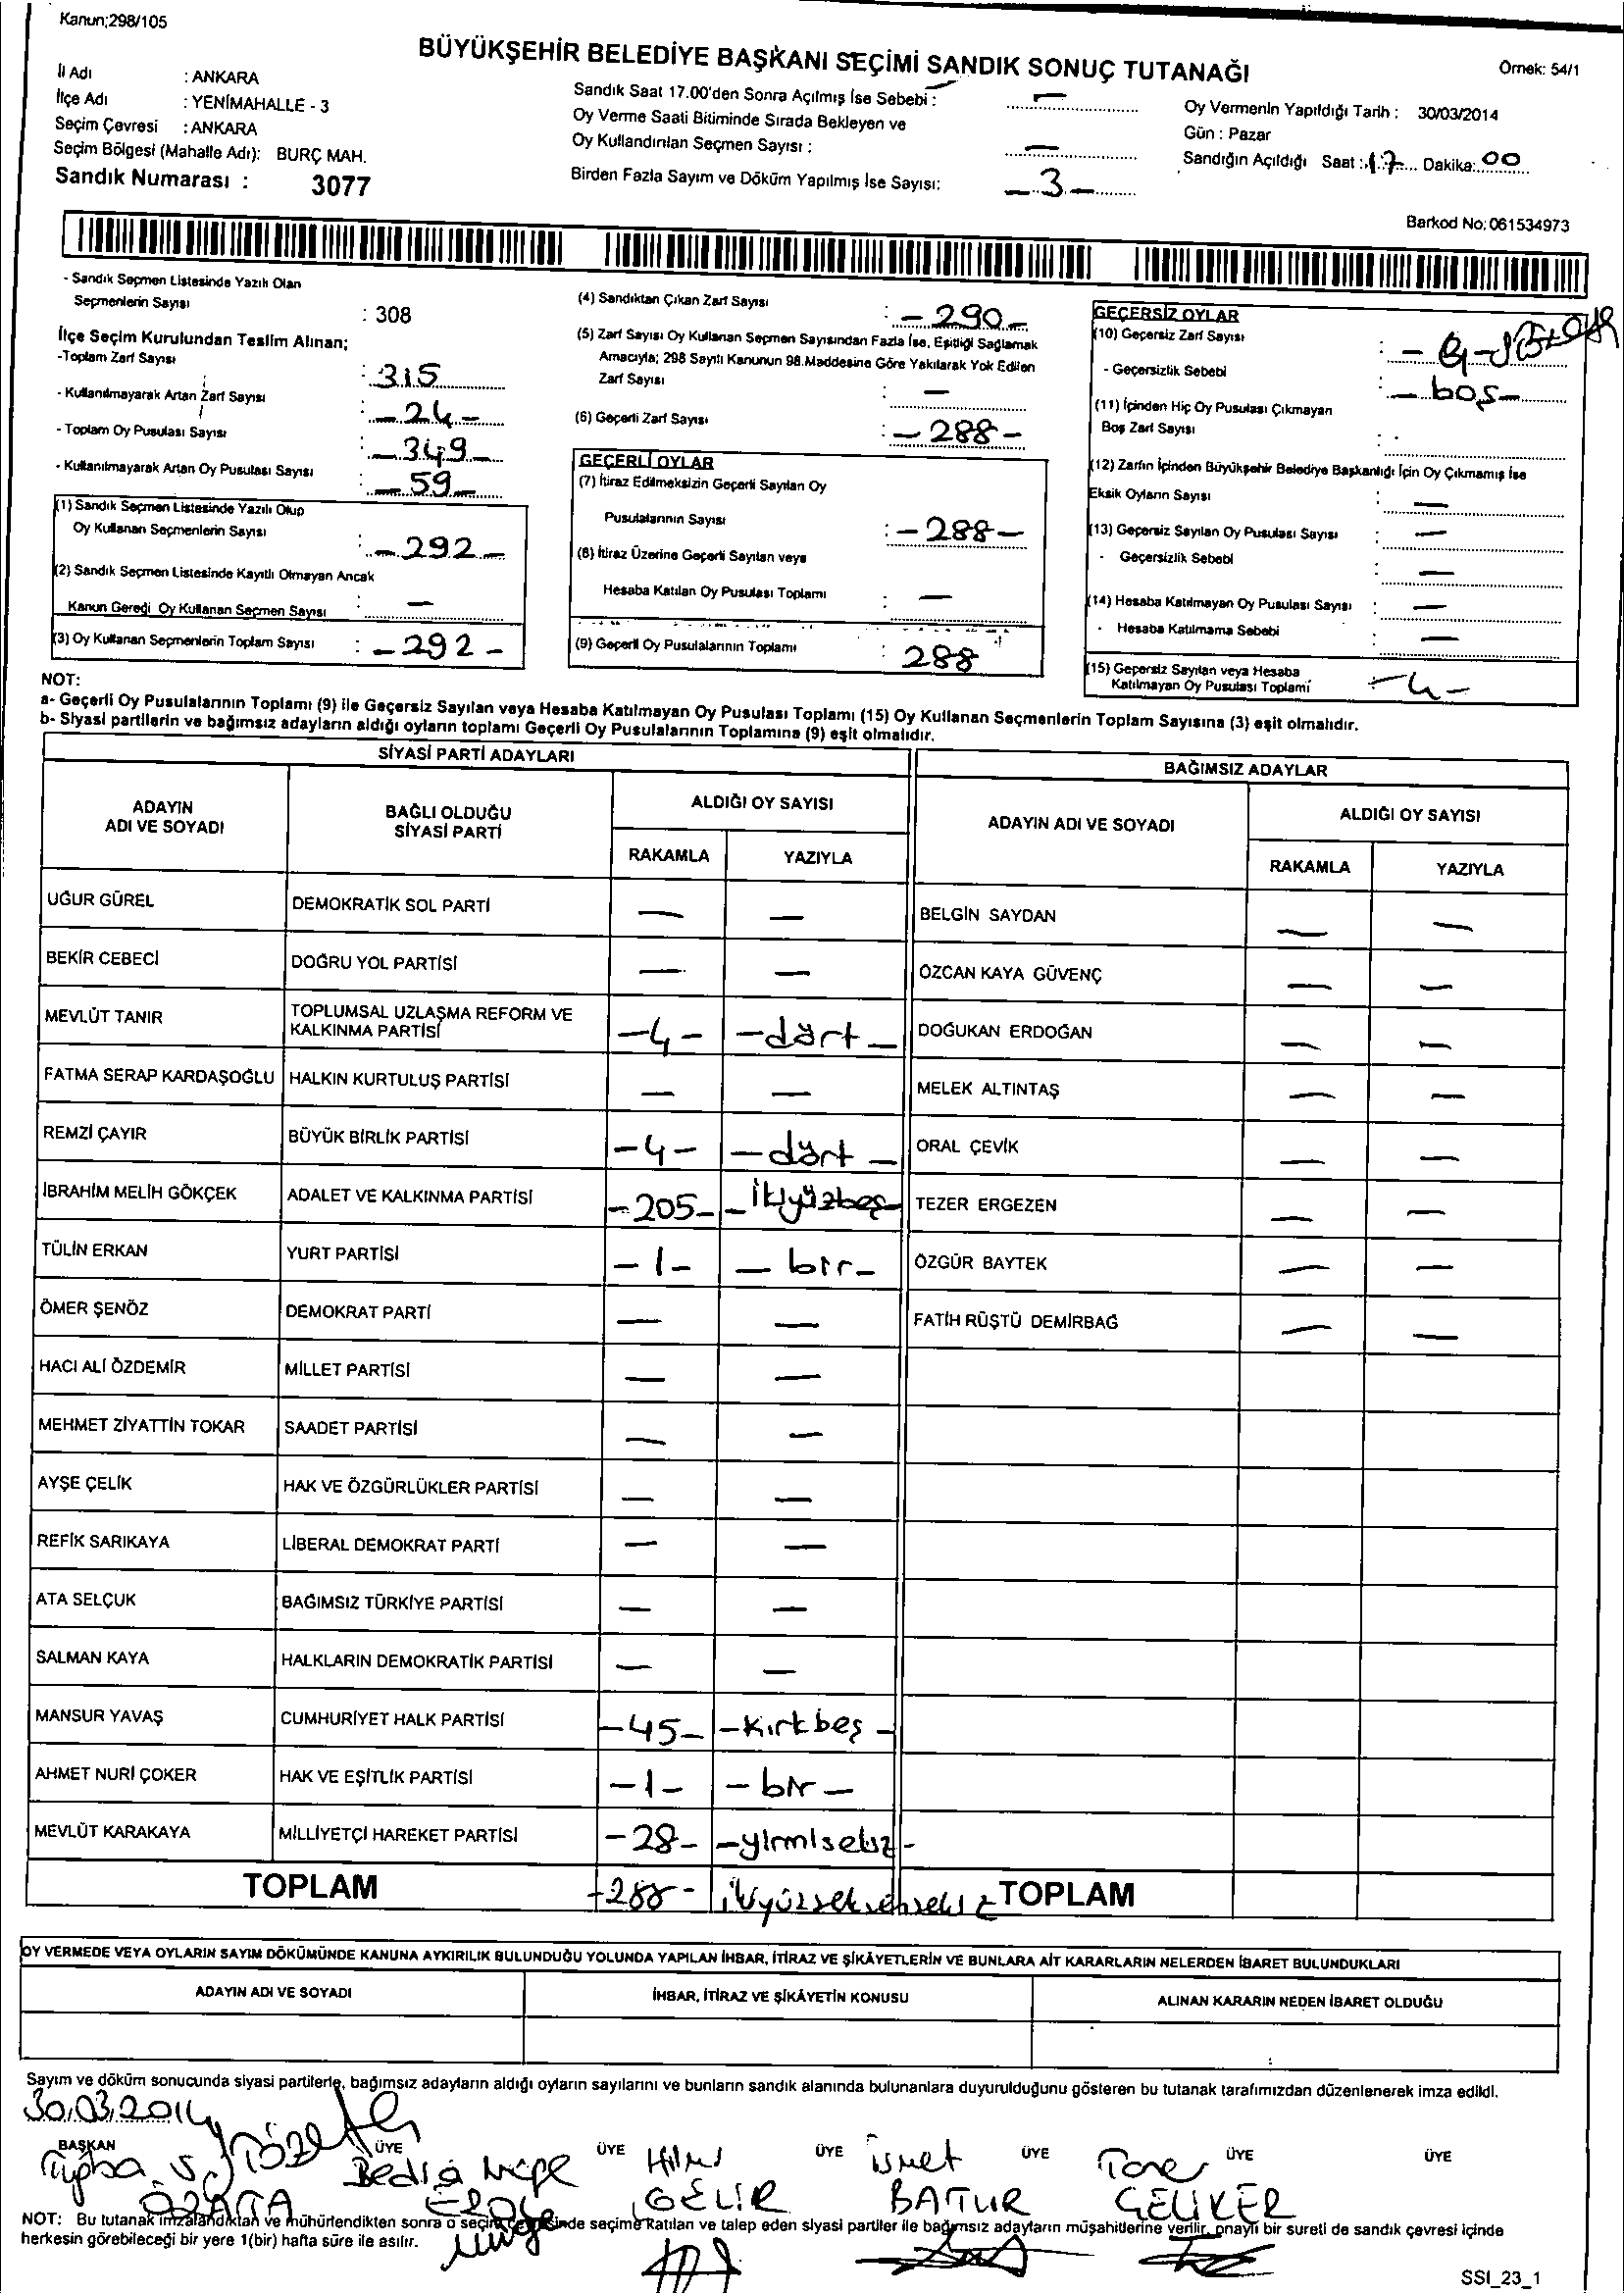 Kanun;298/105
BÜYÜKŞEHİR BELEDİYE BAŞKANI SEÇİMİ SANDIK SONUÇ TUTANAĞI
Örnek: 54/1
İl Adı : ANKARA
İlçe Adı : YENİMAHALLE - 3
Seçim Çevresi : ANKARA
Seçim Bölgesi (Mahalle Adı): BURÇ MAH.
Sandık Numarası : 3077
Sandık Saat 17.00'den Sonra Açılmış İse Sebebi : —
Oy Verme Saati Bitiminde Sırada Bekleyen ve
Oy Kullandırılan Seçmen Sayısı : —
Birden Fazla Sayım ve Döküm Yapılmış İse Sayısı: —3—
Oy Vermenin Yapıldığı Tarih : 30/03/2014
Gün : Pazar
Sandığın Açıldığı Saat : 17 Dakika: 00
Barkod No: 061534973
- Sandık Seçmen Listesinde Yazılı Olan
Seçmenlerin Sayısı : 308
İlçe Seçim Kurulundan Teslim Alınan;
-Toplam Zarf Sayısı : 315
- Kullanılmayarak Artan Zarf Sayısı : -24-
- Toplam Oy Pusulası Sayısı : -349-
- Kullanılmayarak Artan Oy Pusulası Sayısı : -59-
(1) Sandık Seçmen Listesinde Yazılı Olup
Oy Kullanan Seçmenlerin Sayısı : -292-
(2) Sandık Seçmen Listesinde Kayıtlı Olmayan Ancak
Kanun Gereği Oy Kullanan Seçmen Sayısı : —
(3) Oy Kullanan Seçmenlerin Toplam Sayısı : -292-
(4) Sandıktan Çıkan Zarf Sayısı : -290-
(5) Zarf Sayısı Oy Kullanan Seçmen Sayısından Fazla İse, Eşitliği Sağlamak
Amacıyla; 298 Sayılı Kanunun 98.Maddesine Göre Yakılarak Yok Edilen
Zarf Sayısı : —
(6) Geçerli Zarf Sayısı : -288-
GEÇERLİ OYLAR
(7) İtiraz Edilmeksizin Geçerli Sayılan Oy
Pusulalarının Sayısı : -288-
(8) İtiraz Üzerine Geçerli Sayılan veya
Hesaba Katılan Oy Pusulası Toplamı : —
(9) Geçerli Oy Pusulalarının Toplamı : 288
GEÇERSİZ OYLAR
(10) Geçersiz Zarf Sayısı :
- Geçersizlik Sebebi : -boş-
(11) İçinden Hiç Oy Pusulası Çıkmayan
Boş Zarf Sayısı :
(12) Zarfın İçinden Büyükşehir Belediye Başkanlığı İçin Oy Çıkmamış İse
Eksik Oyların Sayısı : —
(13) Geçersiz Sayılan Oy Pusulası Sayısı : —
- Geçersizlik Sebebi : —
(14) Hesaba Katılmayan Oy Pusulası Sayısı : —
- Hesaba Katılmama Sebebi : —
(15) Geçersiz Sayılan veya Hesaba
Katılmayan Oy Pusulası Toplamı -4-
NOT:
a- Geçerli Oy Pusulalarının Toplamı (9) ile Geçersiz Sayılan veya Hesaba Katılmayan Oy Pusulası Toplamı (15) Oy Kullanan Seçmenlerin Toplam Sayısına (3) eşit olmalıdır.
b- Siyasi partilerin ve bağımsız adayların aldığı oyların toplamı Geçerli Oy Pusulalarının Toplamına (9) eşit olmalıdır.
SİYASİ PARTİ ADAYLARI
BAĞIMSIZ ADAYLAR
ADAYIN ADI VE SOYADI
BAĞLI OLDUĞU SİYASİ PARTİ
ALDIĞI OY SAYISI
RAKAMLA YAZIYLA
ADAYIN ADI VE SOYADI
ALDIĞI OY SAYISI
RAKAMLA YAZIYLA
UĞUR GÜREL DEMOKRATİK SOL PARTİ — — BELGİN SAYDAN — —
BEKİR CEBECİ DOĞRU YOL PARTİSİ — — ÖZCAN KAYA GÜVENÇ — —
MEVLÜT TANIR TOPLUMSAL UZLAŞMA REFORM VE KALKINMA PARTİSİ -4- -dört- DOĞUKAN ERDOĞAN — —
FATMA SERAP KARDAŞOĞLU HALKIN KURTULUŞ PARTİSİ — — MELEK ALTINTAŞ — —
REMZİ ÇAYIR BÜYÜK BİRLİK PARTİSİ -4- -dört- ORAL ÇEVİK — —
İBRAHİM MELİH GÖKÇEK ADALET VE KALKINMA PARTİSİ -205- -ikiyüzbeş- TEZER ERGEZEN — —
TÜLİN ERKAN YURT PARTİSİ -1- -bir- ÖZGÜR BAYTEK — —
ÖMER ŞENÖZ DEMOKRAT PARTİ — — FATİH RÜŞTÜ DEMİRBAĞ — —
HACI ALİ ÖZDEMİR MİLLET PARTİSİ — —
MEHMET ZİYATTİN TOKAR SAADET PARTİSİ — —
AYŞE ÇELİK HAK VE ÖZGÜRLÜKLER PARTİSİ — —
REFİK SARIKAYA LİBERAL DEMOKRAT PARTİ — —
ATA SELÇUK BAĞIMSIZ TÜRKİYE PARTİSİ — —
SALMAN KAYA HALKLARIN DEMOKRATİK PARTİSİ — —
MANSUR YAVAŞ CUMHURİYET HALK PARTİSİ -45- -Kırkbeş-
AHMET NURİ ÇOKER HAK VE EŞİTLİK PARTİSİ -1- -bir-
MEVLÜT KARAKAYA MİLLİYETÇİ HAREKET PARTİSİ -28- -yirmisekiz-
TOPLAM -288- ikiyüzseksensekiz TOPLAM
OY VERMEDE VEYA OYLARIN SAYIM DÖKÜMÜNDE KANUNA AYKIRILIK BULUNDUĞU YOLUNDA YAPILAN İHBAR, İTİRAZ VE ŞİKÂYETLERİN VE BUNLARA AİT KARARLARIN NELERDEN İBARET BULUNDUKLARI
ADAYIN ADI VE SOYADI İHBAR, İTİRAZ VE ŞİKÂYETİN KONUSU ALINAN KARARIN NEDEN İBARET OLDUĞU
Sayım ve döküm sonucunda siyasi partilerle, bağımsız adayların aldığı oyların sayılarını ve bunların sandık alanında bulunanlara duyurulduğunu gösteren bu tutanak tarafımızdan düzenlenerek imza edildi.
30.03.2014
BAŞKAN ÜYE ÜYE ÜYE ÜYE ÜYE ÜYE
Hilmi İsmet
GELİR BATUR
NOT: Bu tutanak imzalandıktan ve mühürlendikten sonra o seçim çevresinde seçime katılan ve talep eden siyasi partiler ile bağımsız adayların müşahitlerine verilir, onaylı bir sureti de sandık çevresi içinde
herkesin görebileceği bir yere 1(bir) hafta süre ile asılır.
SSI_23_1